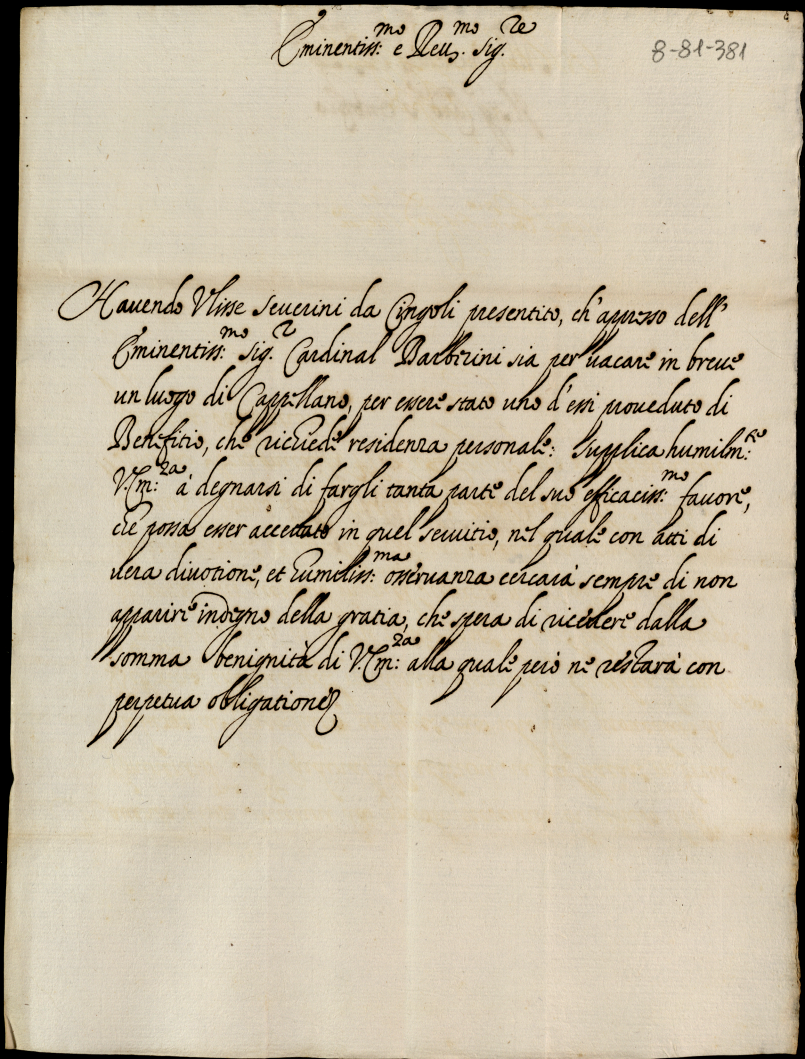 Eminentiss:mo e Reu.mo Sig.re
8-81-381
Hauendo Vlisse Seuerini da Cingoli presentito, ch'appresso dell'
Eminentiss:mo Sig.r Cardinal Barberini sia per uacare in breue
un luogo di Cappellano, per essere stato uno d'essi proueduto di
Benefitio, che richiede residenza personale: Supplica humilm:te
V. Em:za à degnarsi di fargli tanta parte del suo efficaciss:mo fauore,
che possa esser accettato in quel seruitio, nel quale con atti di
uera diuotione, et humiliss:ma osseruanza cercarà sempre di non
apparire indegno della gratia, che spera di riceuere dalla
somma benignità di V. Em:za alla quale però ne restarà con
perpetua obligatione